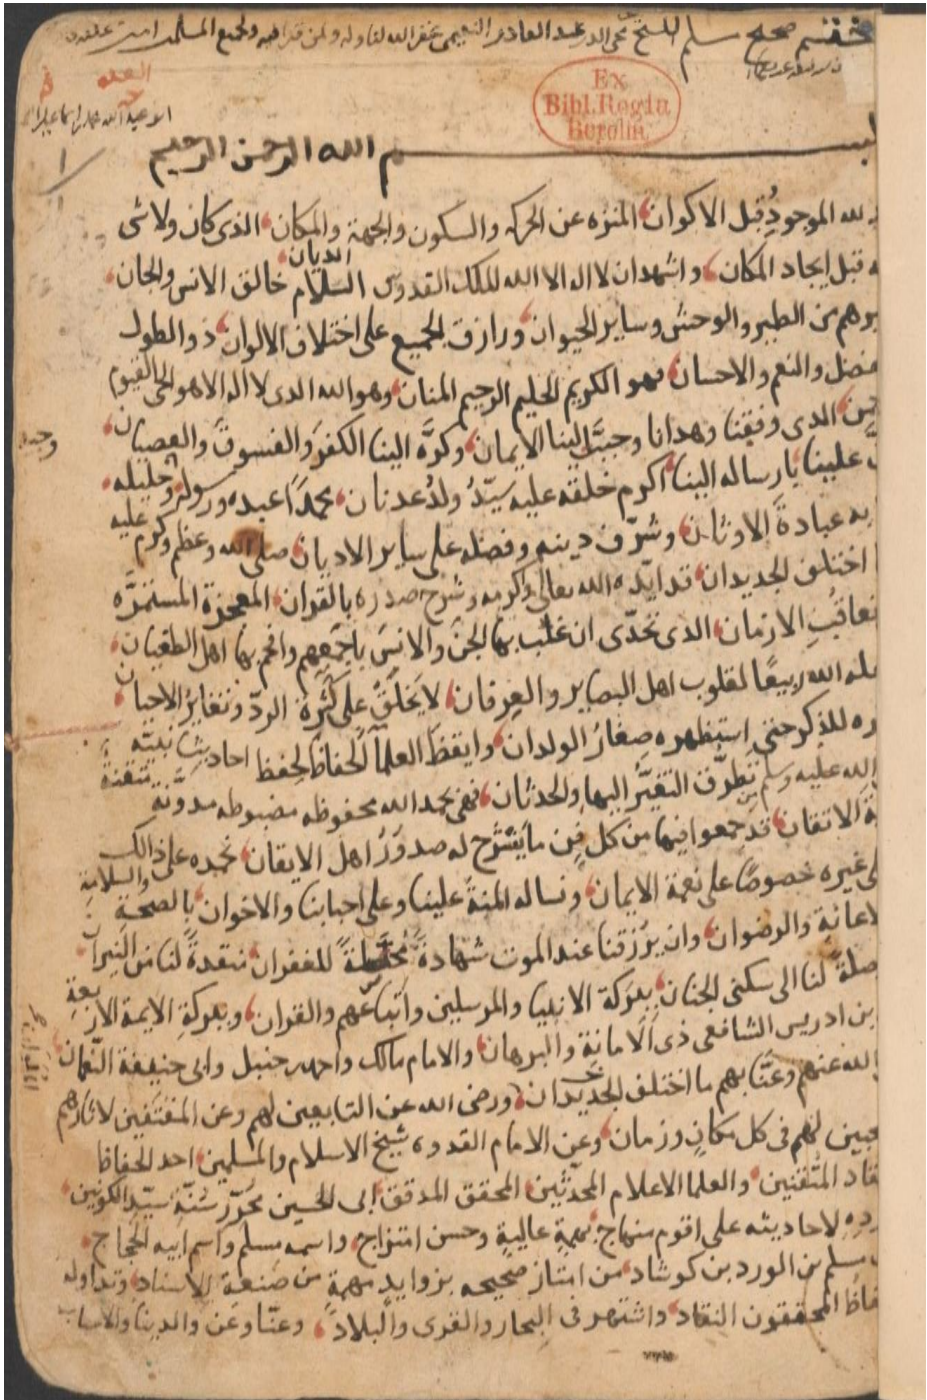 ختم صحيح مسلم للشيخ محى الدين عبد القادر النعيمى غفر الله لقاوله ولمن قرا فيه ولجميع المسلمين امين
Ex
Bibl. Regia
Berolin.
ابو عبد الله محمد بن اسماعيل
١
بسم الله الرحمن الرحيم
لله الموجودِ قبل الاكوان المنزه عن الحركه والسكون والجهة والمكان الذى كان ولا شى
قبل ايجاد المكان واشهد ان لا اله الا الله الملك القدوس السلام الديان خالق الانس والجان
من الطير والوحش وساير الحيوان ورازق الجميع على اختلاف الالوان ذو الطول
والنعم والاحسان فهو الكريم الحليم الرحيم المنان وهو الله الذى لا اله الا هو الحى القيوم
الذى وفقنا وهدانا وحبَّب الينا الايمان وكرَّه الينا الكفرَ والفسوقَ والعصيان
علينا بارساله الينا اكرم خلقه عليه سيّدُ ولدُ عدنان محمداً عبده ورسوله وخليله
به عبادةَ الاوثان وشرّف دينه وفضله على ساير الاديان صلى الله وعظم وكرم عليه
اختلف الجديدان قد ايّده الله تعالى واكرمه وشرح صدره بالقران المعجزة المستمرَّه
تعاقُبِ الازمان الذى تحدّى ان غلب بها الجنَ والانسَ باجمعهم وافحم بها اهل الطغيان
الله ربيعًا لقلوب اهل البصاير والعرفان لا يَخلَقُ على كَثرة الردّ وتغايرُ الاحيان
للذكر حتى استظهره صِغارُ الولدان وايقظَ العلمآ الحفاظَ لحِفظ احاديث نبيّه
الله عليه وسلم من تطرّف التغيُّر اليها والحدثان فهى بحمد الله محفوظه مضبوطه مدوّنة متقنة
الاتقان قد جمعوا فيها من كل فن ما ينشرح له صدورُ اهل الايقان نحمده على ذالك
غيره خصوصًا على نعمة الايمان ونساله المنةَ علينا وعلى احبابنا والاخوان بالصحةِ والسلامةِ
والرضوان وان يرزقنا عند الموت شهادةً مُحَصِّلةً للغفران منقذةً لنا من النيران
لنا الى سكنى الجنان ببركة الانبيا والمرسلين واتباعهم والقران وببركةِ الايمة الاربعةِ
بن ادريس الشافعى ذى الامانة والبرهان والامام مالك واحمد بن حنبل وابى حنيفة النعمان
الله عنهم وعنّا بهم ما اختلف الجديدان ورضى الله عن التابعين لهم وعن المقتفين لاثارهم
لهم فى كل مكانٍ وزمان وعن الامام القدوه شيخ الاسلام والمسلمين احد الحفاظ
المتقنين والعلما الاعلام المحدّثين المحقق المدقق ابى الحسين محرّر سُنّةِ سيّد الكونين
لاحاديثه على اقوم منهاج بهمةٍ عاليةٍ وحسن امتزاج واسمه مسلم واسم ابيه الحجاج
مسلم بن الورد بن كوشاد من امتاز صحيحه بزوايد مهمةٍ من صنعة الاسناد وتداوله
المحققون النقاد واشتهر فى البحار والقرى والبلاد وعنّا وعن والدينا